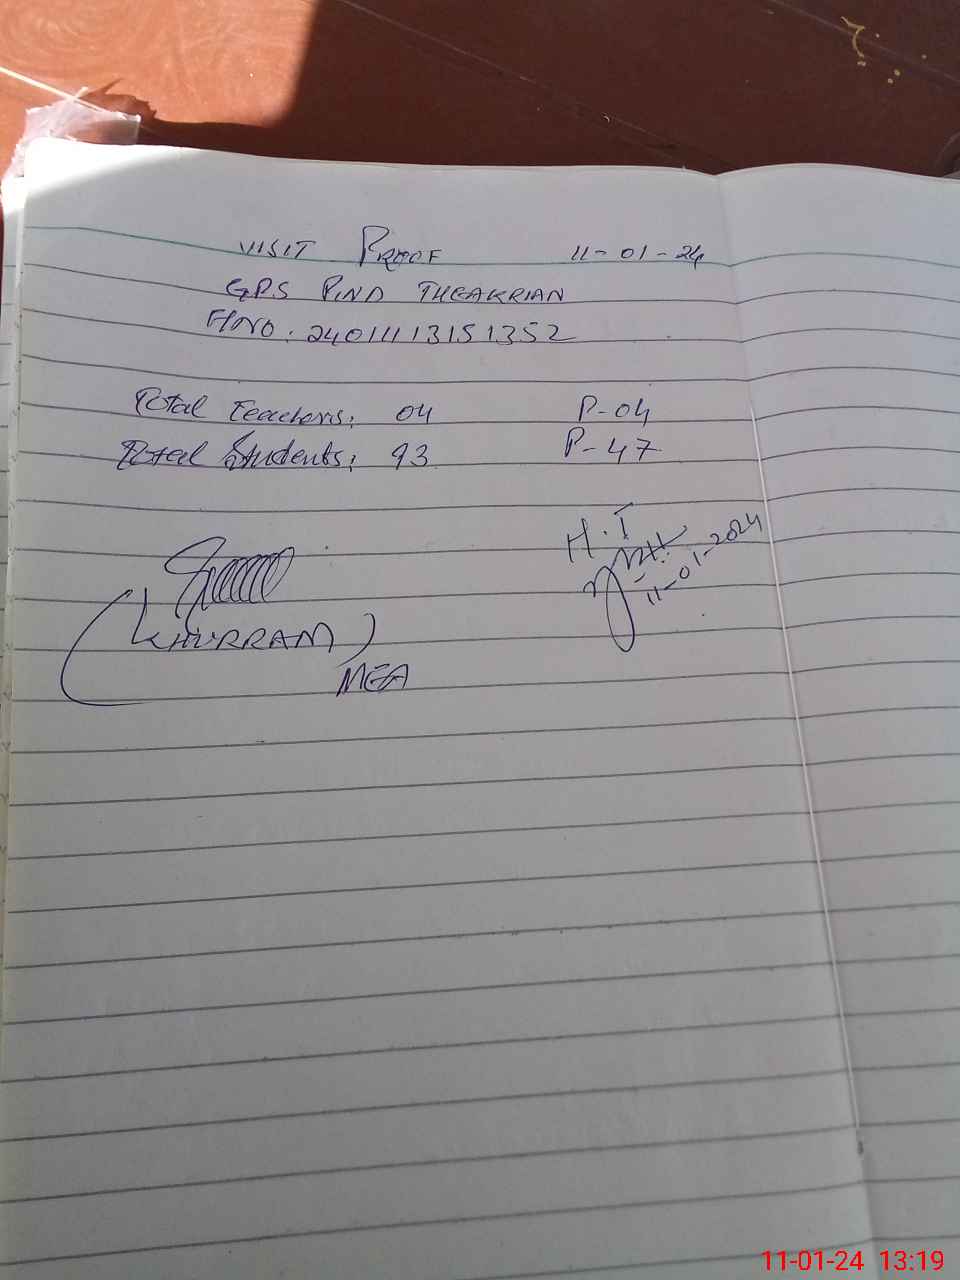 VISIT PROOF 11-01-24
GPS PIND THEAKRIAN
F/NO: 2401113151352
Total Teachers: 04 P-04
Total Students: 93 P-47
H.T
11-01-2024
(KHURRAM)
MEA
11-01-24 13:19